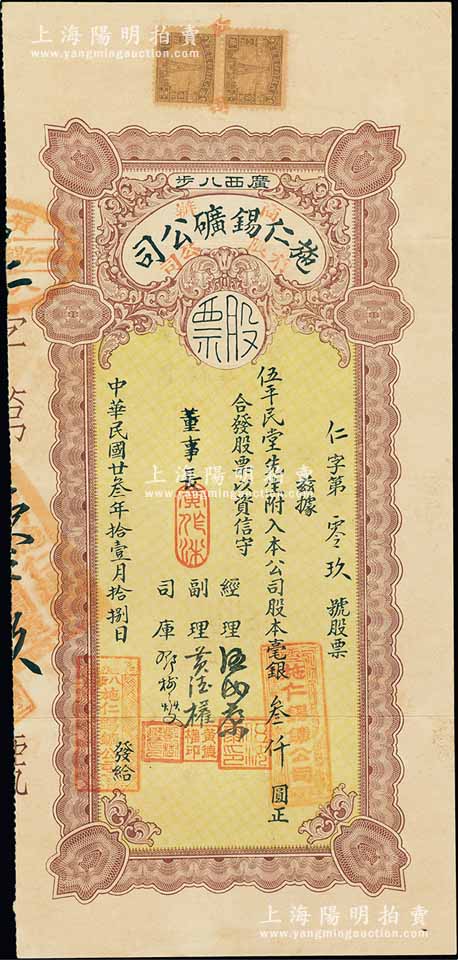 上海陽明拍賣
www.yangmingauction.com
廣西八步
施仁錫礦公司
股票
仁字第 零玖 號股票
茲據
伍平民堂先生附入本公司股本毫銀 叁仟 圓正
合發股票以資信守
董事長
經理
副理 黃德權
司庫
中華民國廿叁年拾壹月拾捌日 發給
上海陽明拍賣
www.yangmingauction.com
上海陽明拍賣
www.yangmingauction.com